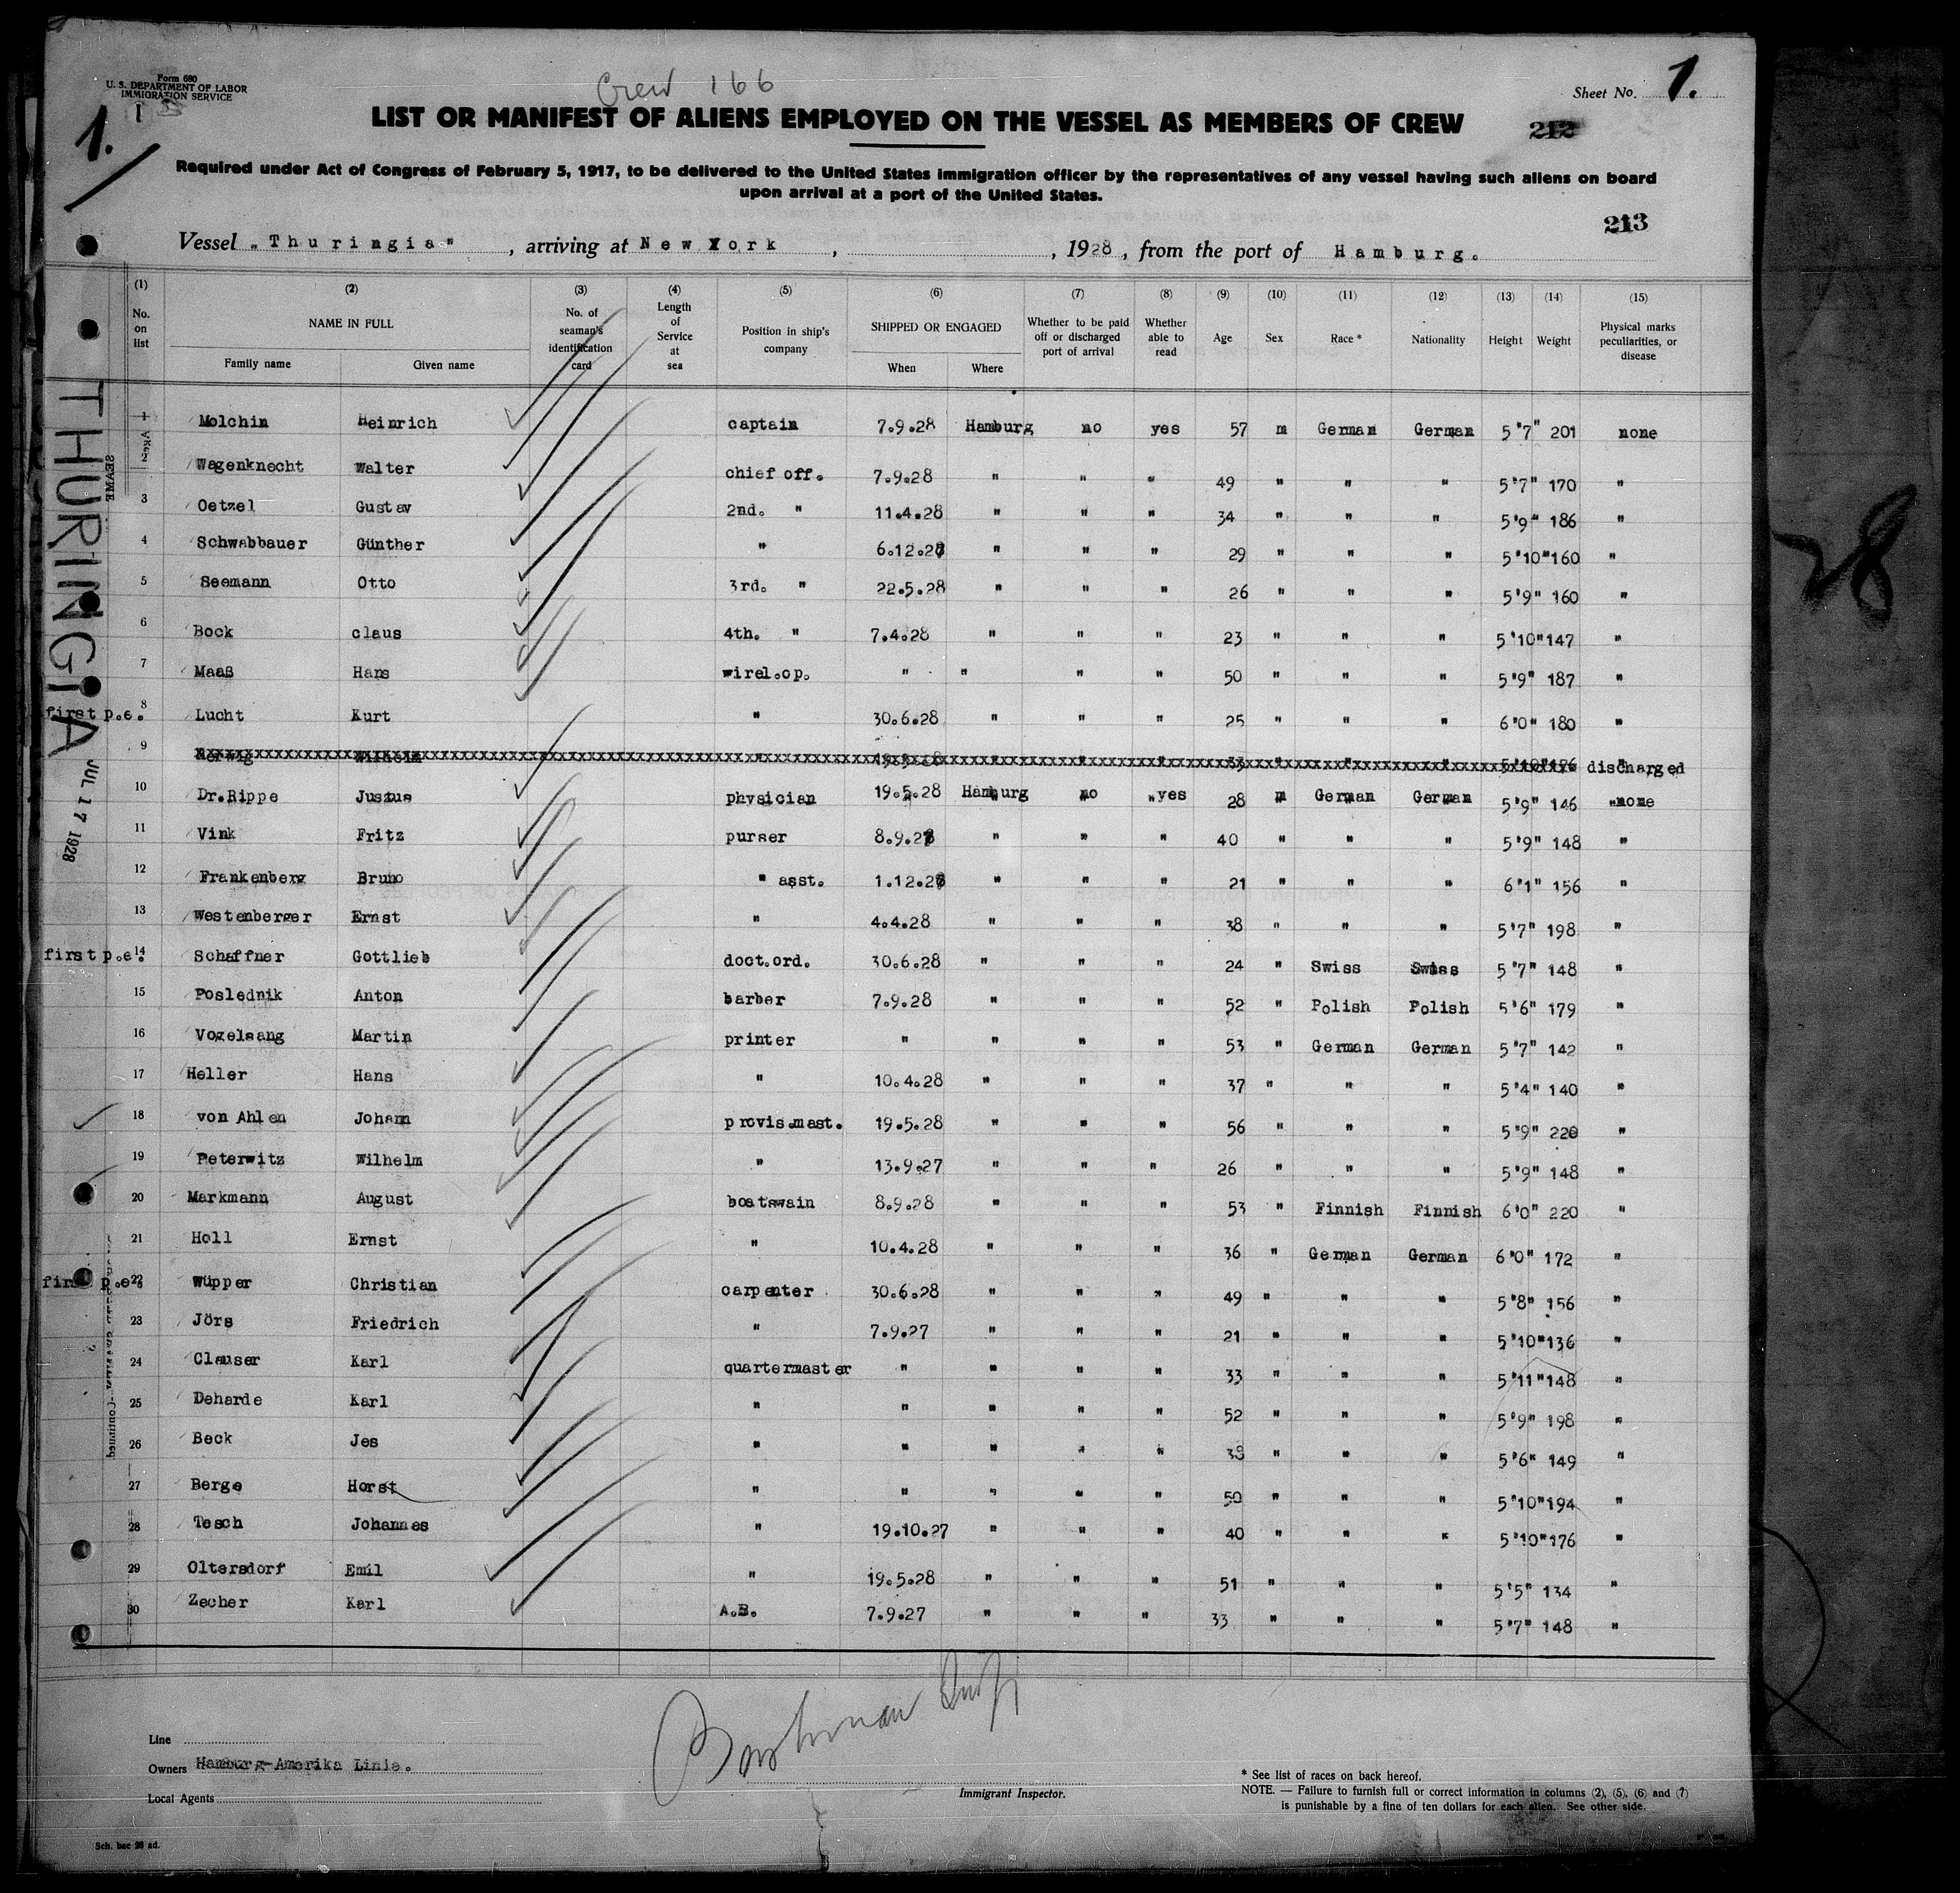 Form 680
U. S. DEPARTMENT OF LABOR
IMMIGRATION SERVICE
Crew 166
Sheet No. 1.
1.
LIST OR MANIFEST OF ALIENS EMPLOYED ON THE VESSEL AS MEMBERS OF CREW
212
Required under Act of Congress of February 5, 1917, to be delivered to the United States immigration officer by the representatives of any vessel having such aliens on board
upon arrival at a port of the United States.
213
Vessel „Thuringia" , arriving at New York , , 1928 , from the port of Hamburg.
(1) (2) (3) (4) (5) (6) (7) (8) (9) (10) (11) (12) (13) (14) (15)
No. on list NAME IN FULL Family name Given name No. of seaman's identification card Length of Service at sea Position in ship's company SHIPPED OR ENGAGED When Where Whether to be paid off or discharged port of arrival Whether able to read Age Sex Race * Nationality Height Weight Physical marks peculiarities, or disease
1 Molchin Heinrich captain 7.9.28 Hamburg no yes 57 m German German 5'7" 201 none
2 Wagenknecht Walter chief off. 7.9.28 " " " 49 " " " 5'7" 170 "
3 Oetzel Gustav 2nd. " 11.4.28 " " " 34 " " " 5'9" 186 "
4 Schwabbauer Günther " 6.12.27 " " " 29 " " " 5'10" 160 "
5 Seemann Otto 3rd. " 22.5.28 " " " 26 " " " 5'9" 160 "
6 Bock claus 4th. " 7.4.28 " " " 23 " " " 5'10" 147 "
7 Maaß Hans wirel.op. " " " " 50 " " " 5'9" 187 "
first p.e. 8 Lucht Kurt " 30.6.28 " " " 25 " " " 6'0" 180 "
9 Herwig Wilhelm " " " " 33 " " " discharged
10 Dr.Rippe Justus physician 19.5.28 Hamburg no yes 28 m German German 5'9" 146 none
11 Vink Fritz purser 8.9.27 " " " 40 " " " 5'9" 148 "
12 Frankenberg Bruno " asst. 1.12.27 " " " 21 " " " 6'1" 156 "
13 Westenberger Ernst " 4.4.28 " " " 38 " " " 5'7" 198 "
first p.e. 14 Schaffner Gottlieb doct.ord. 30.6.28 " " " 24 " Swiss Swiss 5'7" 148 "
15 Poslednik Anton barber 7.9.28 " " " 52 " Polish Polish 5'6" 179 "
16 Vogelsang Martin printer " " " " 53 " German German 5'7" 142 "
17 Heller Hans " 10.4.28 " " " 37 " " " 5'4" 140 "
18 von Ahlen Johann provis.mast. 19.5.28 " " " 56 " " " 5'9" 220 "
19 Peterwitz Wilhelm " 13.9.27 " " " 26 " " " 5'9" 148 "
20 Markmann August boatswain 8.9.28 " " " 53 " Finnish Finnish 6'0" 220 "
21 Holl Ernst " 10.4.28 " " " 36 " German German 6'0" 172 "
first p.e. 22 Wüpper Christian carpenter 30.6.28 " " " 49 " " " 5'8" 156 "
23 Jörs Friedrich " 7.9.27 " " " 21 " " " 5'10" 136 "
24 Clauser Karl quartermaster " " " " 33 " " " 5'11" 148 "
25 Deharde Karl " " " " " 52 " " " 5'9" 198 "
26 Beck Jes " " " " " 38 " " " 5'6" 149 "
27 Berge Horst " " " " " 50 " " " 5'10" 194 "
28 Tesch Johannes " 19.10.27 " " " 40 " " " 5'10" 176 "
29 Oltersdorf Emil " 19.5.28 " " " 51 " " " 5'5" 134 "
30 Zecher Karl A.B. 7.9.27 " " " 33 " " " 5'7" 148 "
THURINGIA
JUL 17 1928
28
Line
Owners Hamburg-Amerika Linie.
Local Agents
Immigrant Inspector.
* See list of races on back hereof.
NOTE. — Failure to furnish full or correct information in columns (2), (5), (6) and (7)
is punishable by a fine of ten dollars for each alien. See other side.